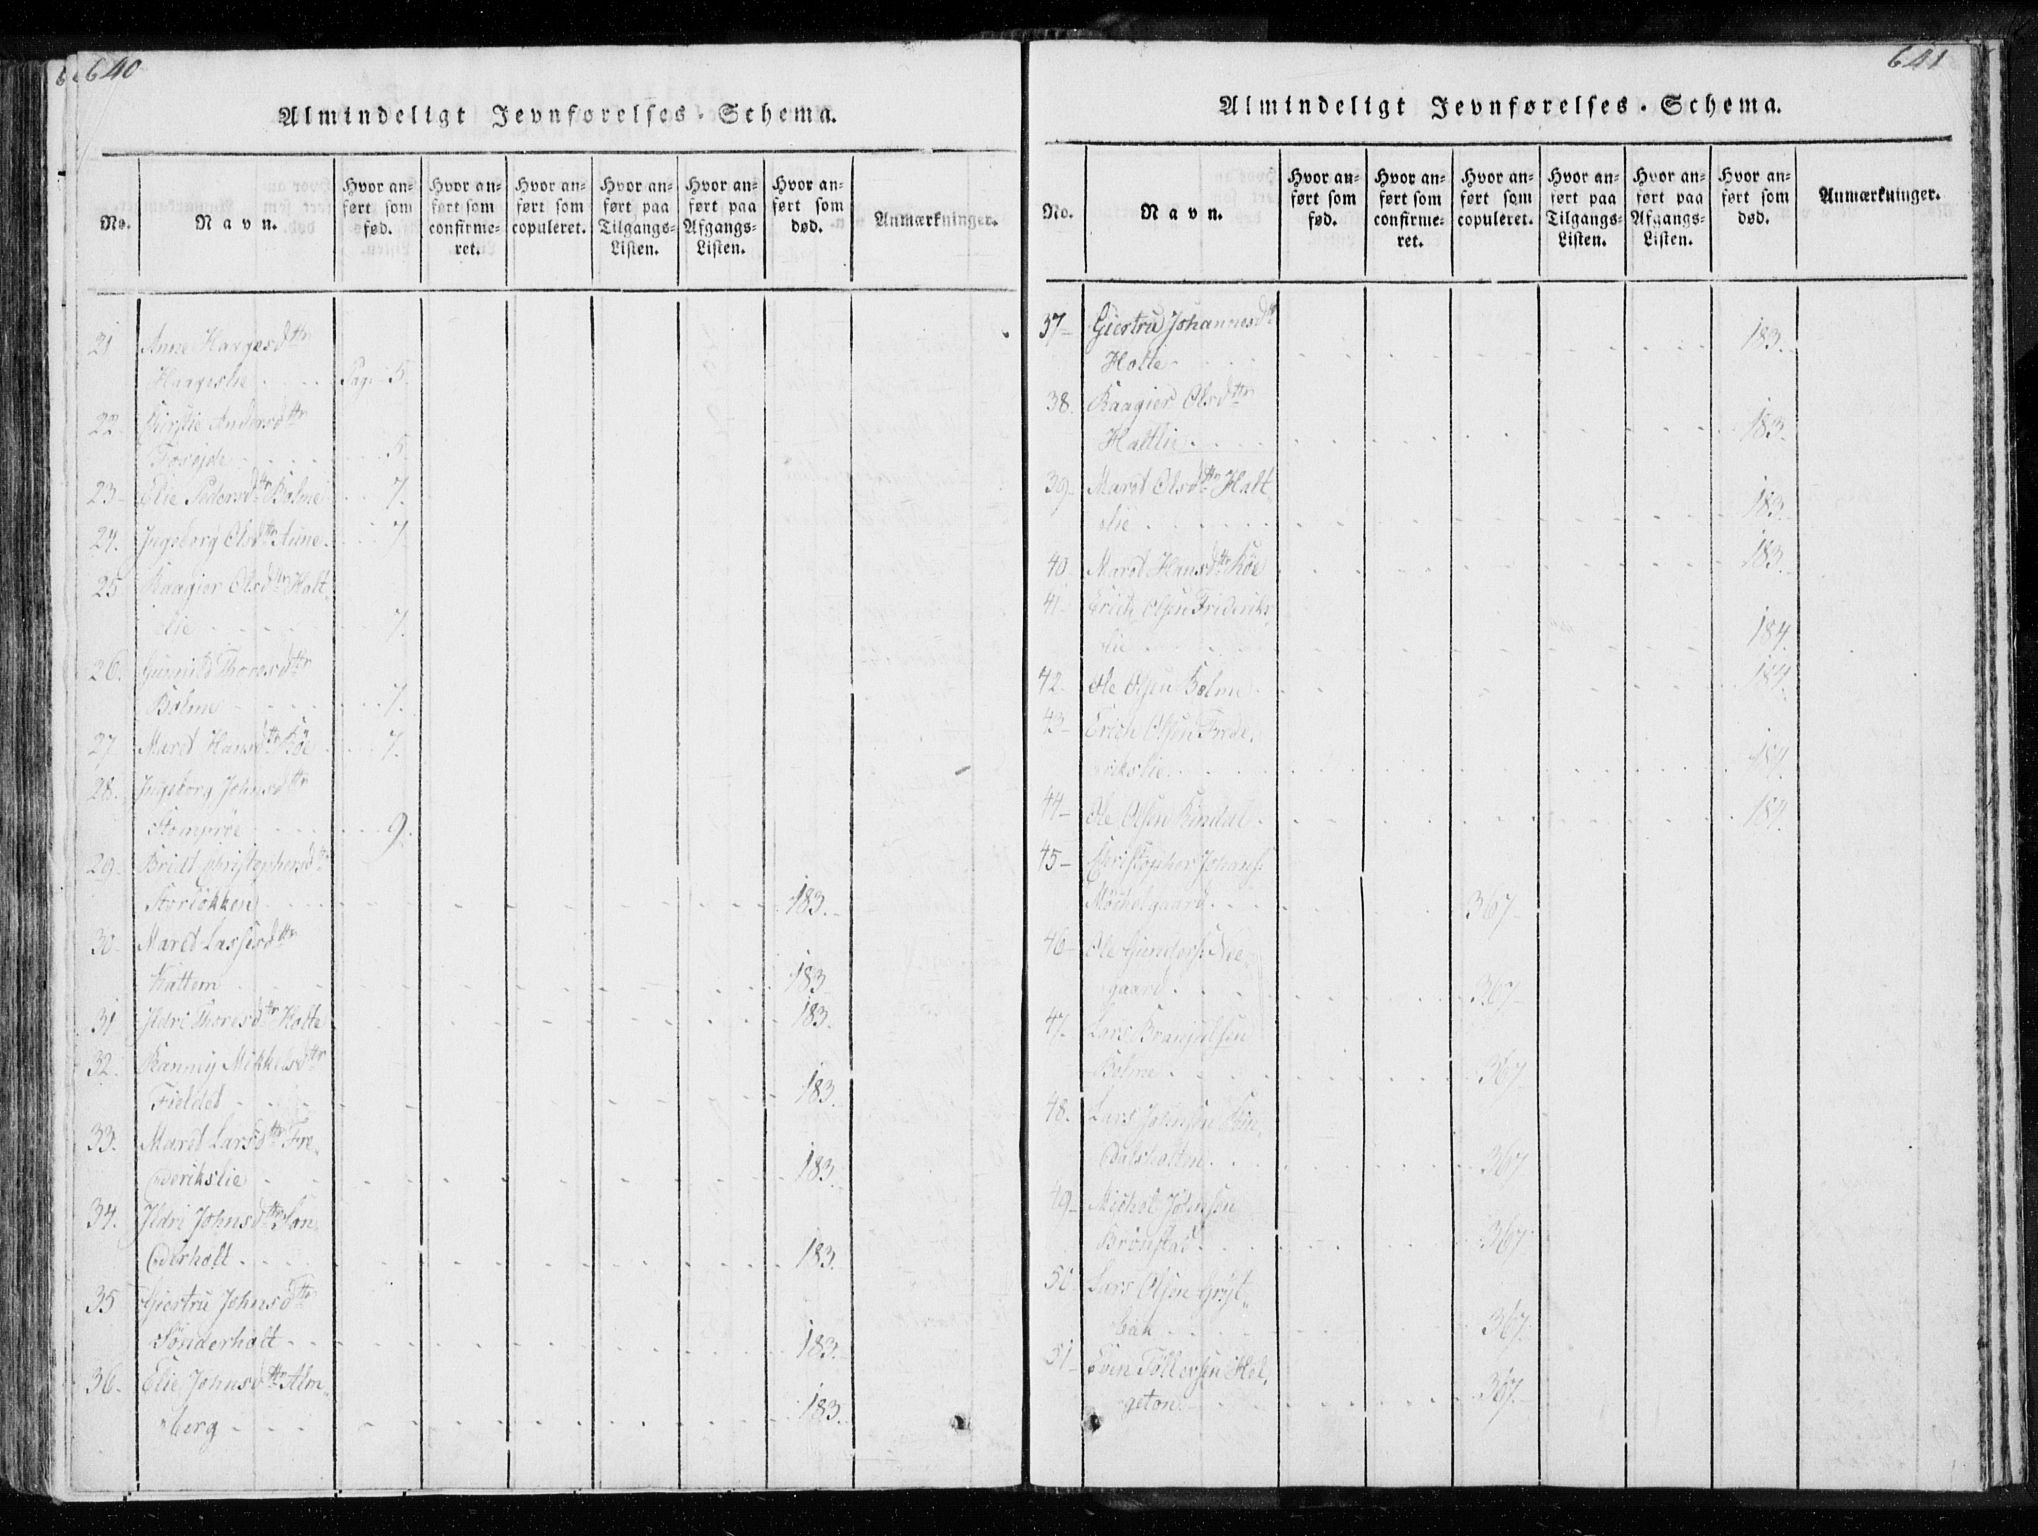 640
Almindeligt Jevnførelses-Schema.
No. Navn. Hvor anført som fød. Hvor anført som confirmeret. Hvor anført som copuleret. Hvor anført paa Tilgangs-Listen. Hvor anført paa Afgangs-Listen. Hvor anført som død. Anmærkninger.
21 Anne Haagesdttr
Haageslie Pag. 5.
22. Kirstie Andersdttr
5.
23 Elie Pedersdttr Bolme 7.
24. Ingeborg Olsdttr Aune 7
25 Raagier Olsdttr Halt
slie 7.
26. Gunnild Thoresdttr
Bolme 7.
27 Maret Hansdttr Röe 7.
28. Ingeborg Johnsdttr
9.
29. Bridt Christophersdttr
Storlökken 183.
30 Maret Lassesdttr
Kattem 183
31 Ildri Thoresdttr Holte 183.
32. Rannig Mikkelsdttr
Fieldet 183.
33. Maret Larsdttr Fre
derikslie 183.
34. Ildri Johnsdttr Søn
derholt 183.
35 Giertru Johnsdttr
Sønderholt 183.
36. Elie Johnsdttr Alm
berg 183.
641
Almindeligt Jevnførelses-Schema.
No. Navn. Hvor anført som fød. Hvor anført som confirmeret. Hvor anført som copuleret. Hvor anført paa Tilgangs-Listen. Hvor anført paa Afgangs-Listen. Hvor anført som død. Anmærkninger.
37 Giertru Johannesdtr
Holte 183.
38. Raagier Olsdttr
Haltlie 183.
39 Maret Olsdttr Halt
slie 183.
40 Maret Hansdttr Röe 183.
41 Erich Olsen Frideriks
lie 184.
42 Ole Olsen Bolme 184.
43 Erich Olsen Frede
rikslie 184.
44 Ole Olsen Rindal 184.
45 Christopher Johans.
Möchelgaard 367
46 Ole Gunders. Nee
gaard 367
47 Lars
Bolme 367
48. Lars Johnsen Rin
dalsholten 367
49 Michel Johnsen
Brönstad 367
50 Lars Olsen Gryt
bak 367.
51 Sven Tollersen Hel
geton 367.